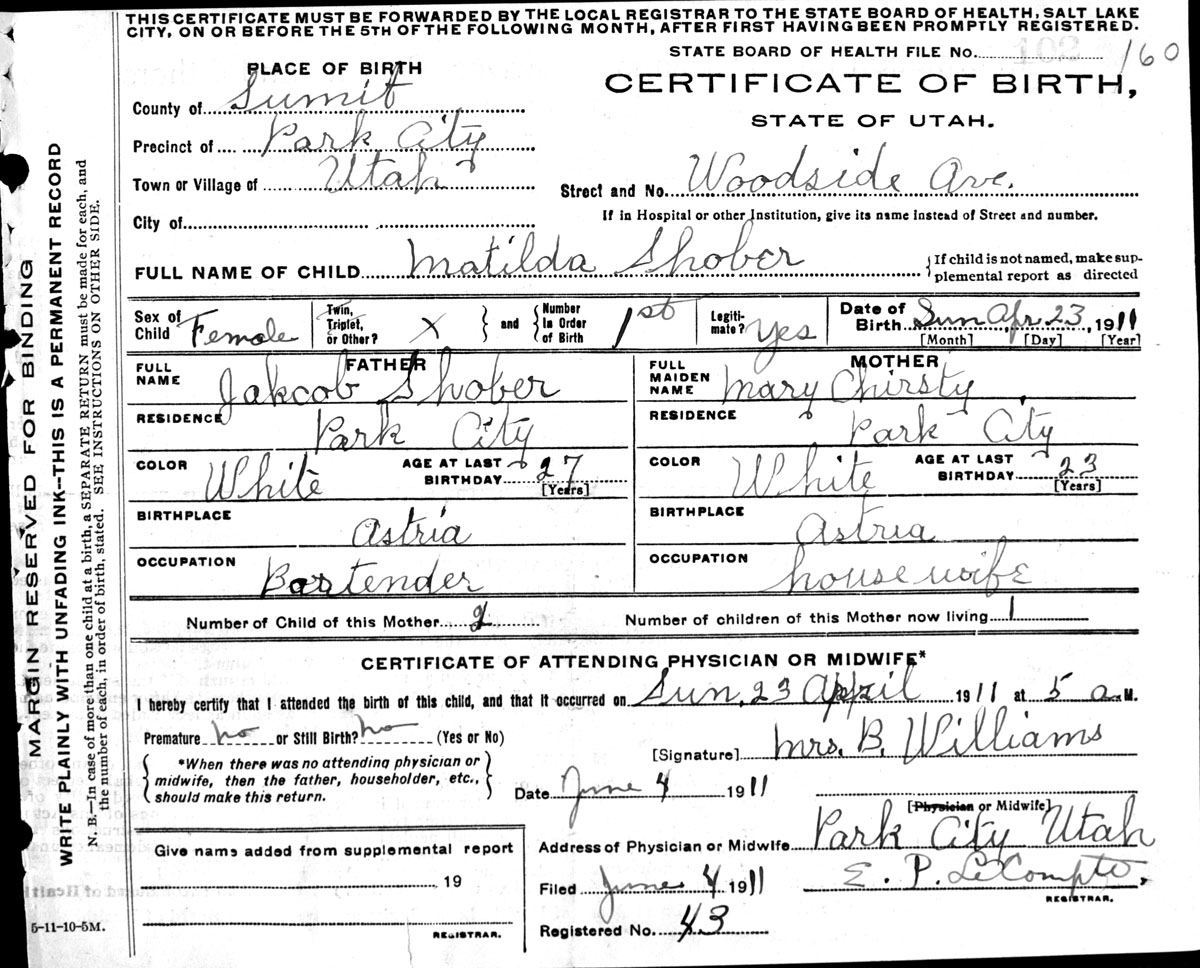 THIS CERTIFICATE MUST BE FORWARDED BY THE LOCAL REGISTRAR TO THE STATE BOARD OF HEALTH, SALT LAKE
CITY, ON OR BEFORE THE 5TH OF THE FOLLOWING MONTH, AFTER FIRST HAVING BEEN PROMPTLY REGISTERED.
STATE BOARD OF HEALTH FILE No. 160
PLACE OF BIRTH
CERTIFICATE OF BIRTH,
STATE OF UTAH.
County of Sumit
Precinct of Park City
Town or Village of Utah
Street and No. Woodside Ave.
City of
If in Hospital or other Institution, give its name instead of Street and number.
FULL NAME OF CHILD Matilda Shober
{If child is not named, make sup-
plemental report as directed
Sex of Child Female
Twin, Triplet, or Other? X
and Number in Order of Birth 1st
Legiti-mate? Yes
Date of Birth Sun Apr 23, 1911
[Month] [Day] [Year]
FATHER
FULL NAME Jakcob Shober
RESIDENCE Park City
COLOR White AGE AT LAST BIRTHDAY 27
[Years]
BIRTHPLACE Astria
OCCUPATION Bartender
MOTHER
FULL MAIDEN NAME Mary Chirsty
RESIDENCE Park City
COLOR White AGE AT LAST BIRTHDAY 23
[Years]
BIRTHPLACE Astria
OCCUPATION housewife
Number of Child of this Mother 2 Number of children of this Mother now living 1
CERTIFICATE OF ATTENDING PHYSICIAN OR MIDWIFE*
I hereby certify that I attended the birth of this child, and that it occurred on Sun, 23 April 1911 at 5 a M.
Premature no or Still Birth? no (Yes or No)
*When there was no attending physician or
midwife, then the father, householder, etc.,
should make this return.
[Signature] Mrs. B. Williams
Date June 4 1911
[Physician or Midwife]
Address of Physician or Midwife Park City Utah
Filed June 4 1911 E. P. LeCompte,
REGISTRAR.
Registered No. 43
Give name added from supplemental report
19
REGISTRAR.
5-11-10-5M.
MARGIN RESERVED FOR BINDING
WRITE PLAINLY WITH UNFADING INK--THIS IS A PERMANENT RECORD
N. B.—In case of more than one child at a birth, a SEPARATE RETURN must be made for each, and
the number of each, in order of birth, stated. SEE INSTRUCTIONS ON OTHER SIDE.